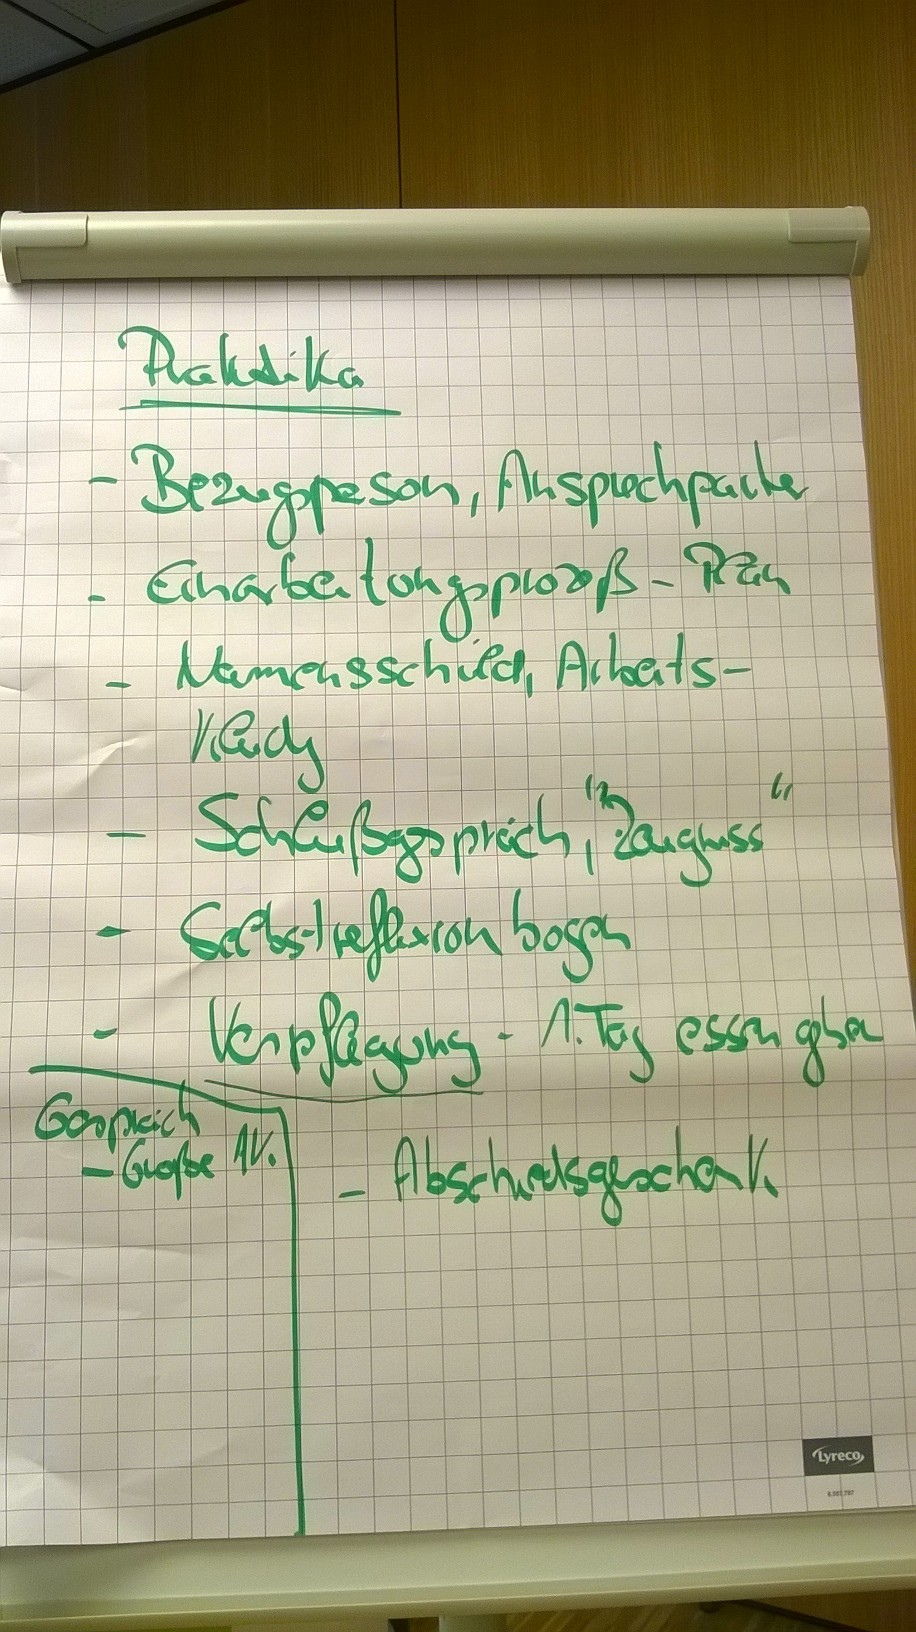 Praktika
- Bezugsperson, Ansprechpartner
- Einarbeitungsprozeß - Plan
- Namensschild, Arbeits-
kleidg
- Schlußgespräch, "Zeugniss"
- Selbstreflexionbogen
- Verpflegung - 1. Tag essen gehen
Gespräch
- Große AV.
- Abschiedsgeschenk
Lyreco